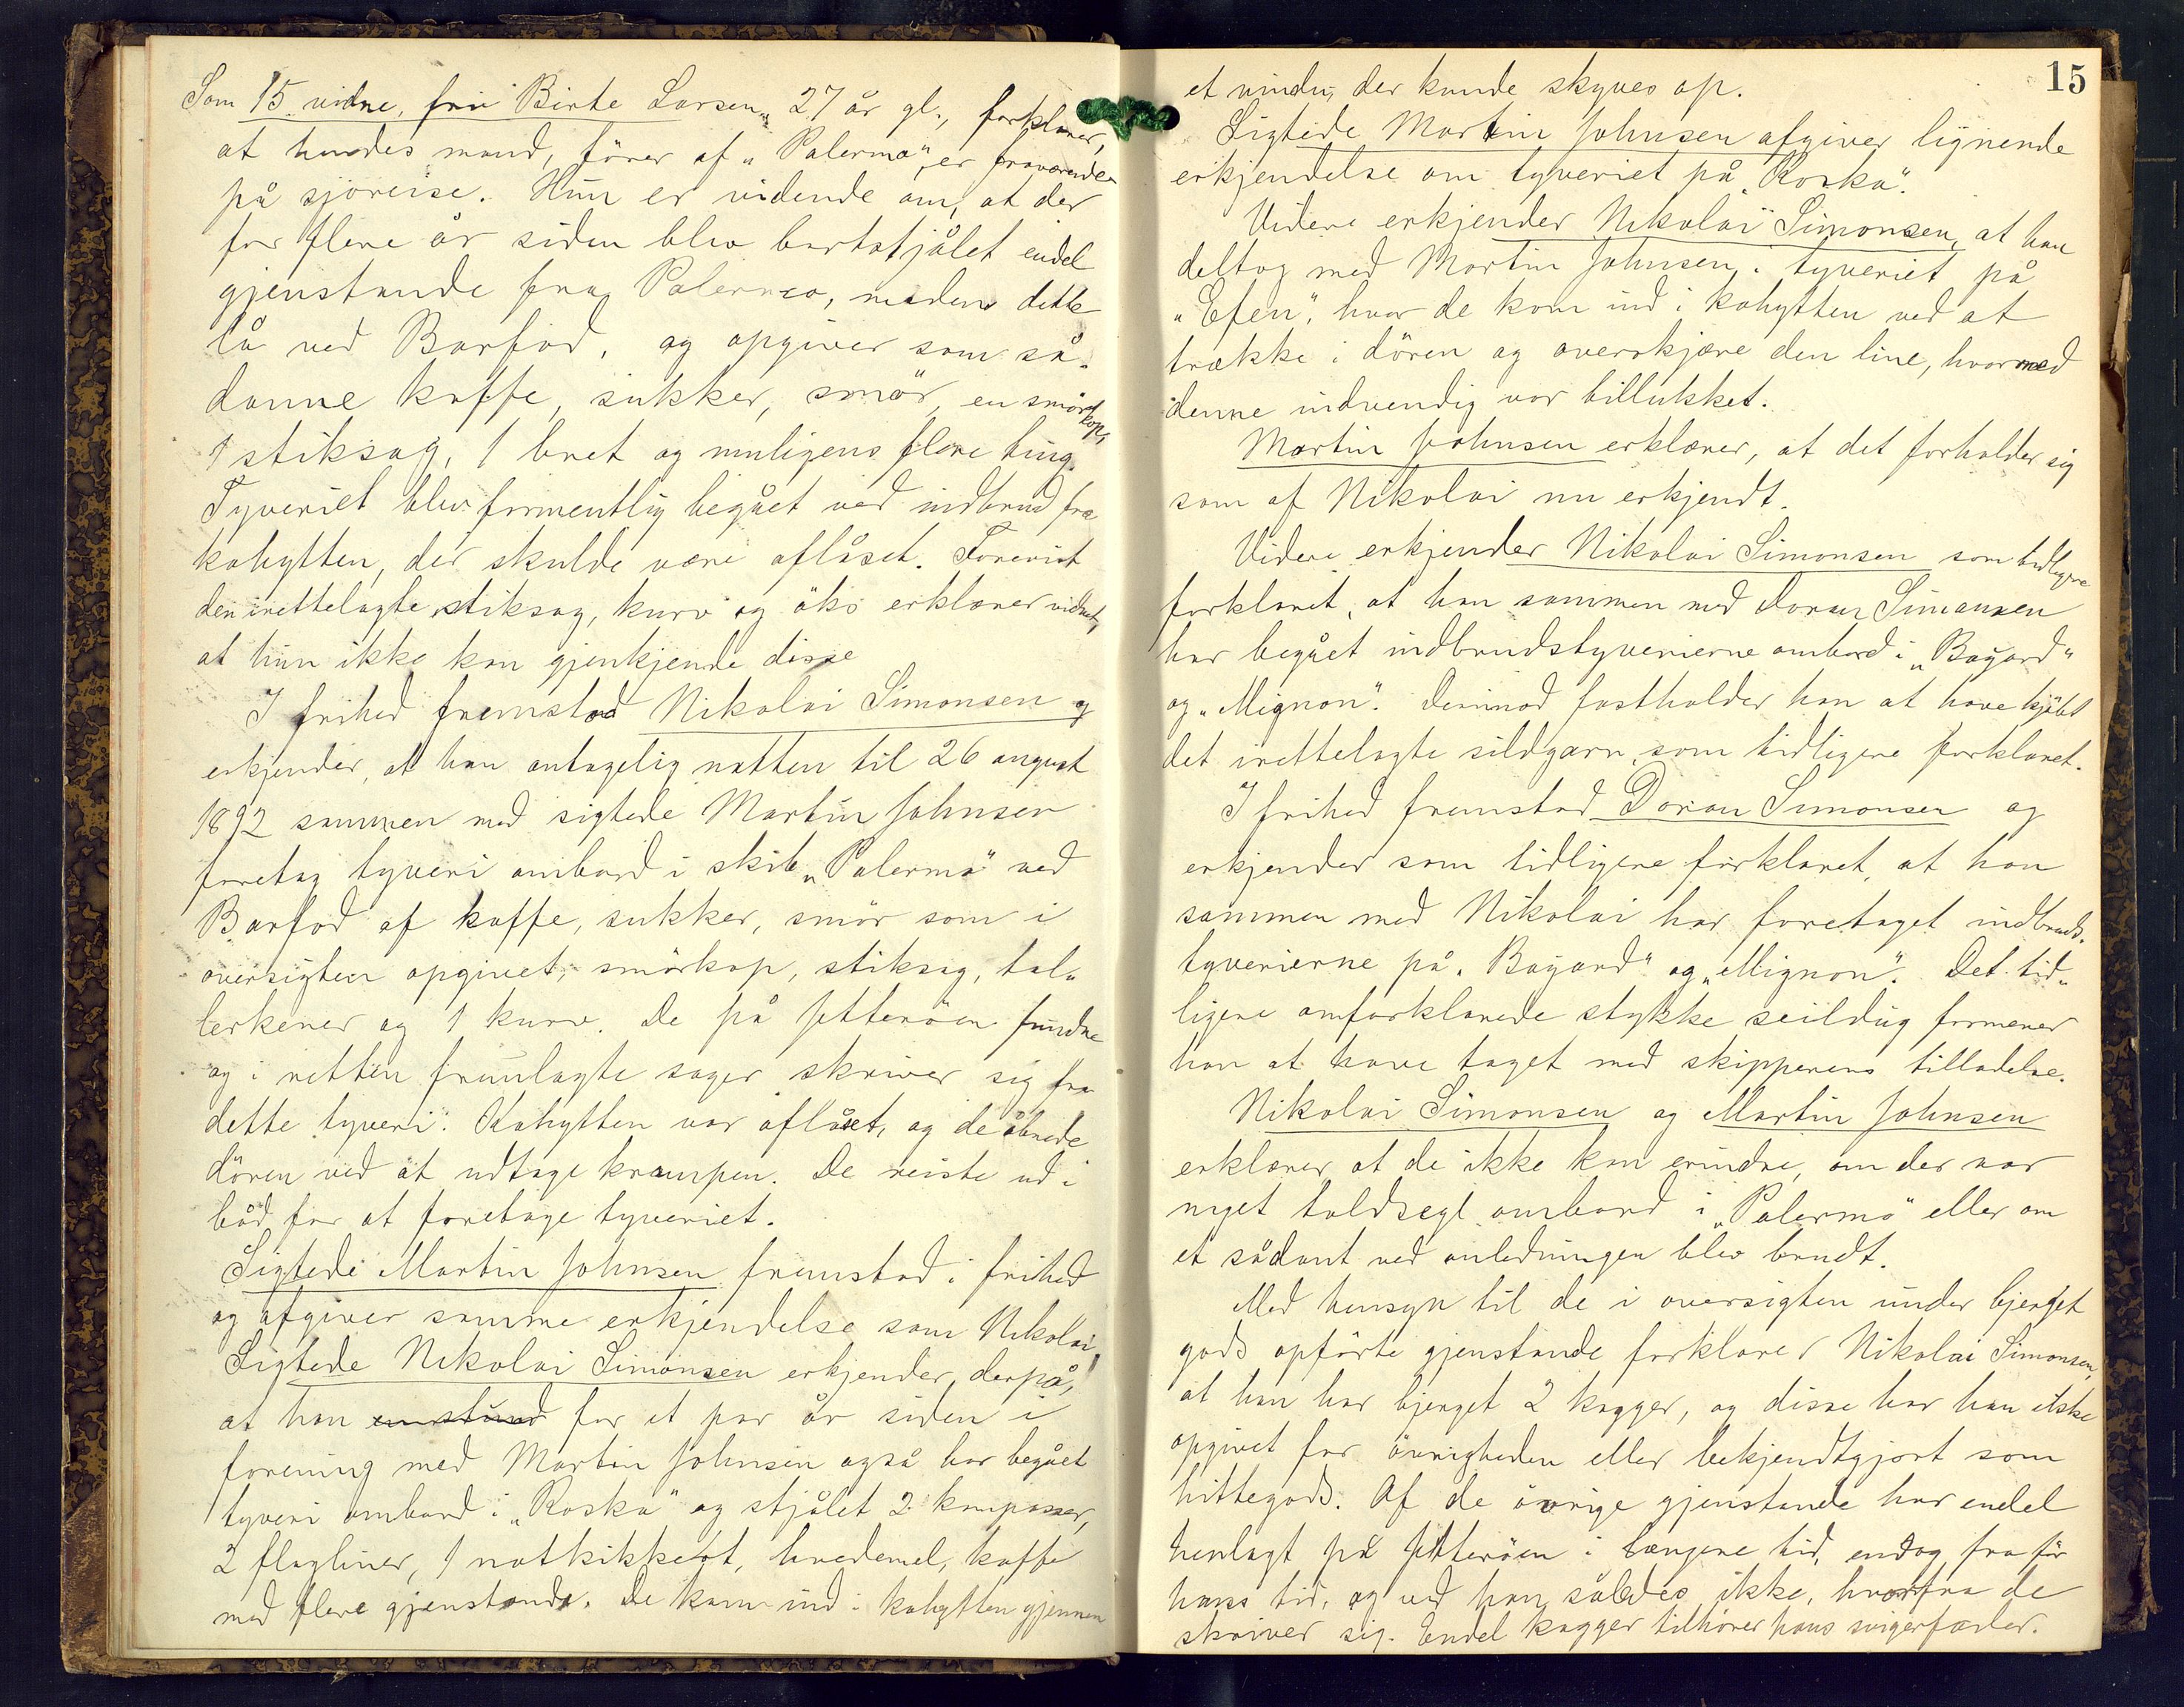 Som 15. vidne, fru Birte Larsen, 27 år gl., forklarer,
at hendes mand, fører af „Palermo", er fraværende
på sjöreise. Hun er vidende om, at der
for flere år siden blev bortstjålet endel
gjenstande fra Palermo, medens dette
lå ved Barfod, og opgiver som så-
danne kaffe, sukker, smör, en smörkop,
1 stiksag, 1 bret og muligens flere ting.
Tyveriet blev formentlig begået ved indbrud fra
kahytten, der skulde være aflåset. Forevist
den irettelagte stiksag, kurv og öks erklærer vidnet,
at hun ikke kan gjenkjende disse
I frihed fremstod Nikolai Simonsen og
erkjender, at han antagelig natten til 26 august
1892 sammen med sigtede Martin Johnsen
foretog tyveri ombord i skib „Palermo" ved
Barfod af kaffe, sukker, smör som i
oversigten opgivet, smörkop, stiksag, tal-
lerkener og 1 kurv. De på Jetteröen fundne
og i retten fremlagte sager skriver sig fra
dette tyveri. Kahytten var aflåset, og de åbnede
dören ved at udtage krampen. De reiste ud i
båd for at foretage tyveriet.
Sigtede Martin Johnsen fremstod i frihed
og afgiver samme erkjendelse som Nikolai.
Sigtede Nikolai Simonsen erkjender derpå,
at han en stund for et par år siden i
forening med Martin Johnsen også har begået
tyveri ombord i „Roska" og stjålet 2 kompasser,
2 flagliner, 1 natkikkert, hvedemel, kaffe
med flere gjenstande. De kom ind i kahytten gjennem
15
et vindu, der kunde skyves op.
Sigtede Martin Johnsen afgiver lignende
erkjendelse om tyveriet på „Roska".
Videre erkjender Nikolai Simonsen, at han
deltog med Martin Johnsen i tyveriet på
„Efen", hvor de kom ind i kahytten ved at
trække i dören og overskjære den line, hvormed
denne indvendig var tillukket.
Martin Johnsen erklærer, at det forholder sig
som af Nikolai nu erkjendt.
Videre erkjender Nikolai Simonsen som tidligere
forklaret, at han sammen med Doran Simonsen
har begået indbrudstyverierne ombord i „Bayard"
og „Mignon". Derimod fastholder han at have kjöbt
det irettelagte sildgarn, som tidligere forklaret.
I frihed fremstod Doran Simonsen og
erkjender som tidligere forklaret, at han
sammen med Nikolai har foretaget indbruds-
tyverierne på „Bayard" og „Mignon". Det tid-
ligere omforklarede stykke seildug formener
han at have taget med skipperens tilladelse.
Nikolai Simonsen og Martin Johnsen
erklærer, at de ikke kan erindre, om der var
noget toldsegl ombord i „Palermo" eller om
et sådant ved anledningen blev brudt.
Med hensyn til de i oversigten under bjerget
gods opförte gjenstande forklarer Nikolai Simonsen,
at han har bjerget 2 kagger, og disse har han ikke
opgivet for övrigheden eller bekjendtgjort som
hittegods. Af de övrige gjenstande har endel
henlagt på Jetteröen i længere tid, endog fra för
hans tid, og ved han således ikke, hvorfra de
skriver sig. Endel kagger tilhörer hans svigerfader.